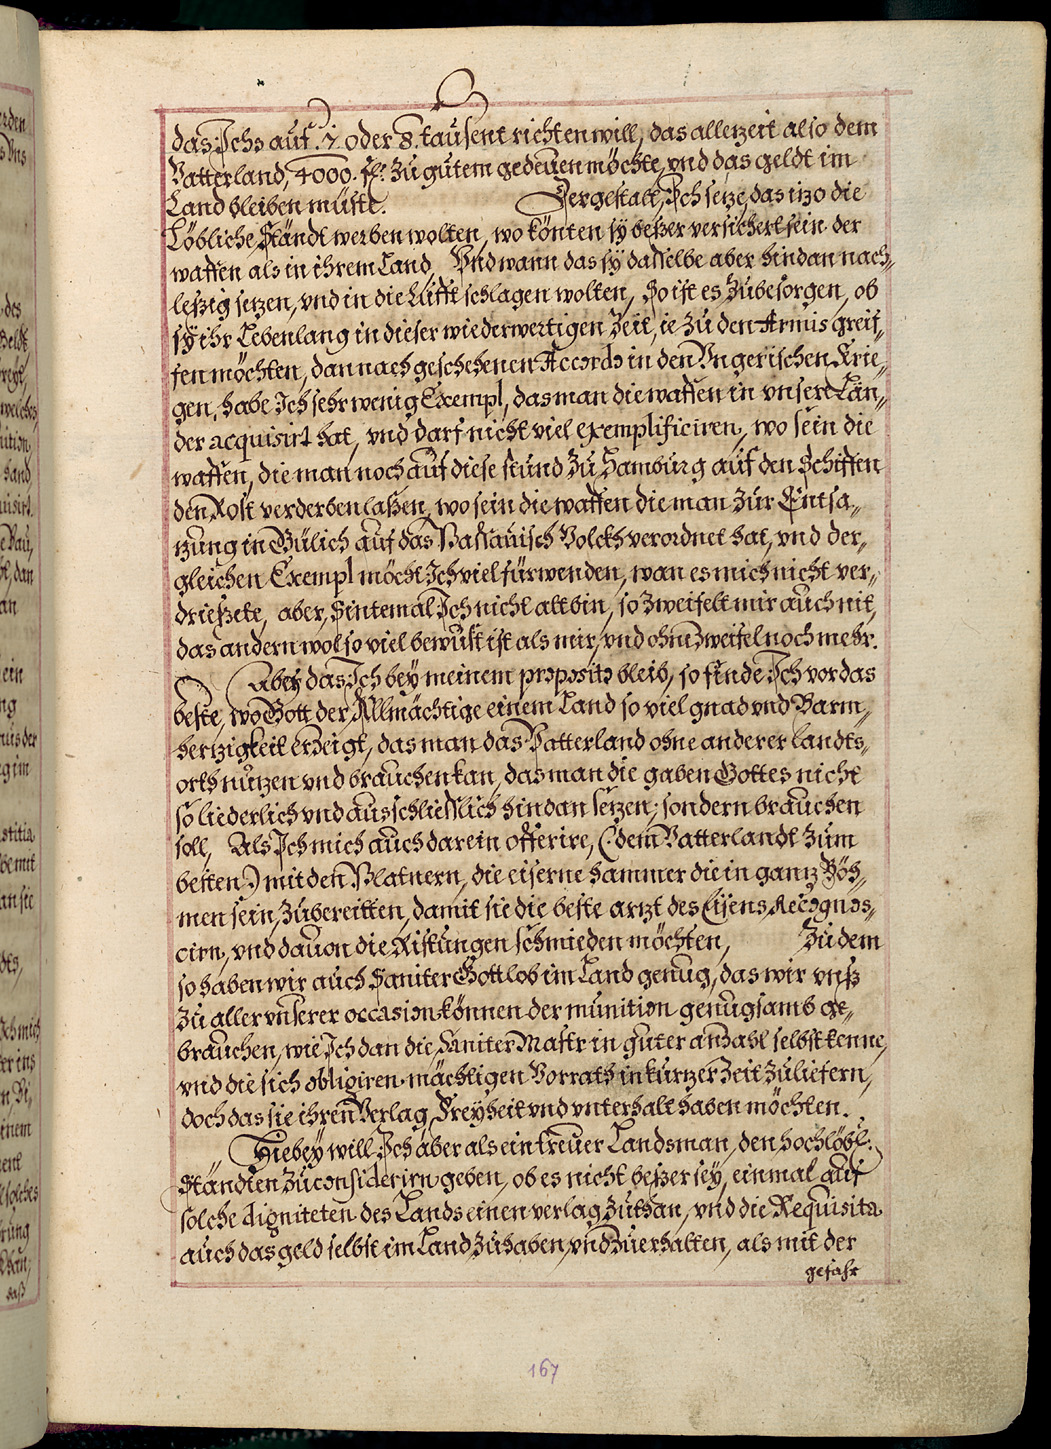 das Ichs auf .7. oder 8. tausent richten will, das allezeit also dem
Vatterland, 4000. fl. zu gutem gedeuen möchte, vnd das geldt im
Land bleiben müste. Dergestalt, Ich setze, das izo die
Löbliche Ständt werben wolten, wo könten sÿ beßer versichert sein der
waffen als in ihrem Land, Vnd wann das sÿ dasselbe aber hindan nach„
leßig setzen, vnd in die Lüfft schlagen wolten, So ist es Zubesorgen, ob
sÿ ihr Lebenlang in dieser wiederwertigen Zeit, ie zu den Armis greif„
fen möchten, dan nach geschehenen Accordo in den Vngerischen Krie„
gen, habe Ich sehr wenig Exempl, das man die waffen in vnsere Län„
der acquisirt hat, vnd darf nicht viel exemplificiren, wo sein die
waffen, die man noch auf diese stund Zu Hamburg auf den Schiffen
den Rost verderben laßen, wo sein die waffen die man Zur Entsa„
tzung in Gülich auf das Passauisch Volckh verordnet hat, vnd der„
gleichen Exempl möcht Ich viel fürwenden, wan es mich nicht ver„
drießete, aber, Sintemal Ich nicht alt bin, so Zweifelt mir auch nit,
das andern wol so viel bewust ist als mir, vnd ohn Zweifel noch mehr.
Aber das Ich bey meinem proposito bleib, so finde Ich vor das
beste, wo Gott der Allmächtige einem Land so viel gnad vnd Barm„
hertzigkeit erzeigt, das man das Vatterland ohne anderer landts„
orth nutzen vnd brauchen kan, das man die gaben Gottes nicht
so liederlich vnd ausschliesslich hindan setzen, sondern brauchen
soll, Als Ich mich auch darein offerire, (: dem Vatterlandt Zum
besten :) mit den Blatnern, die eiserne hammer die in gantz Böh„
men sein, Zubereitten, damit sie die beste artzt des Eisens Recognos„
cirn, vnd dauon die Ristungen schmieden möchten, Zu dem
so haben wir auch Saniter Gottlob im Land genug, das wir vnß
Zu aller vnserer occasion können der munition genugsamb ge„
brauchen, wie Ich dan die Saniter Mastr in guter anzahl selbst kenne,
vnd die sich obligiren mächtigen Vorrath in kurtzer Zeit Zuliefern,
doch das sie ihren Verlag, Freyheit vnd vnterhalt haben möchten.
Hiebey will Ich aber als ein treuer Landsman, den hochlöbl:
Ständten Zu considerirn geben, ob es nicht beßer sey, einmal auf
solche digniteten des Lands einen verlag Zuthan, vnd die Requisita
auch das geld selbst im Land Zuhaben, vnd Zuerhalten, als mit der
gefahr
167